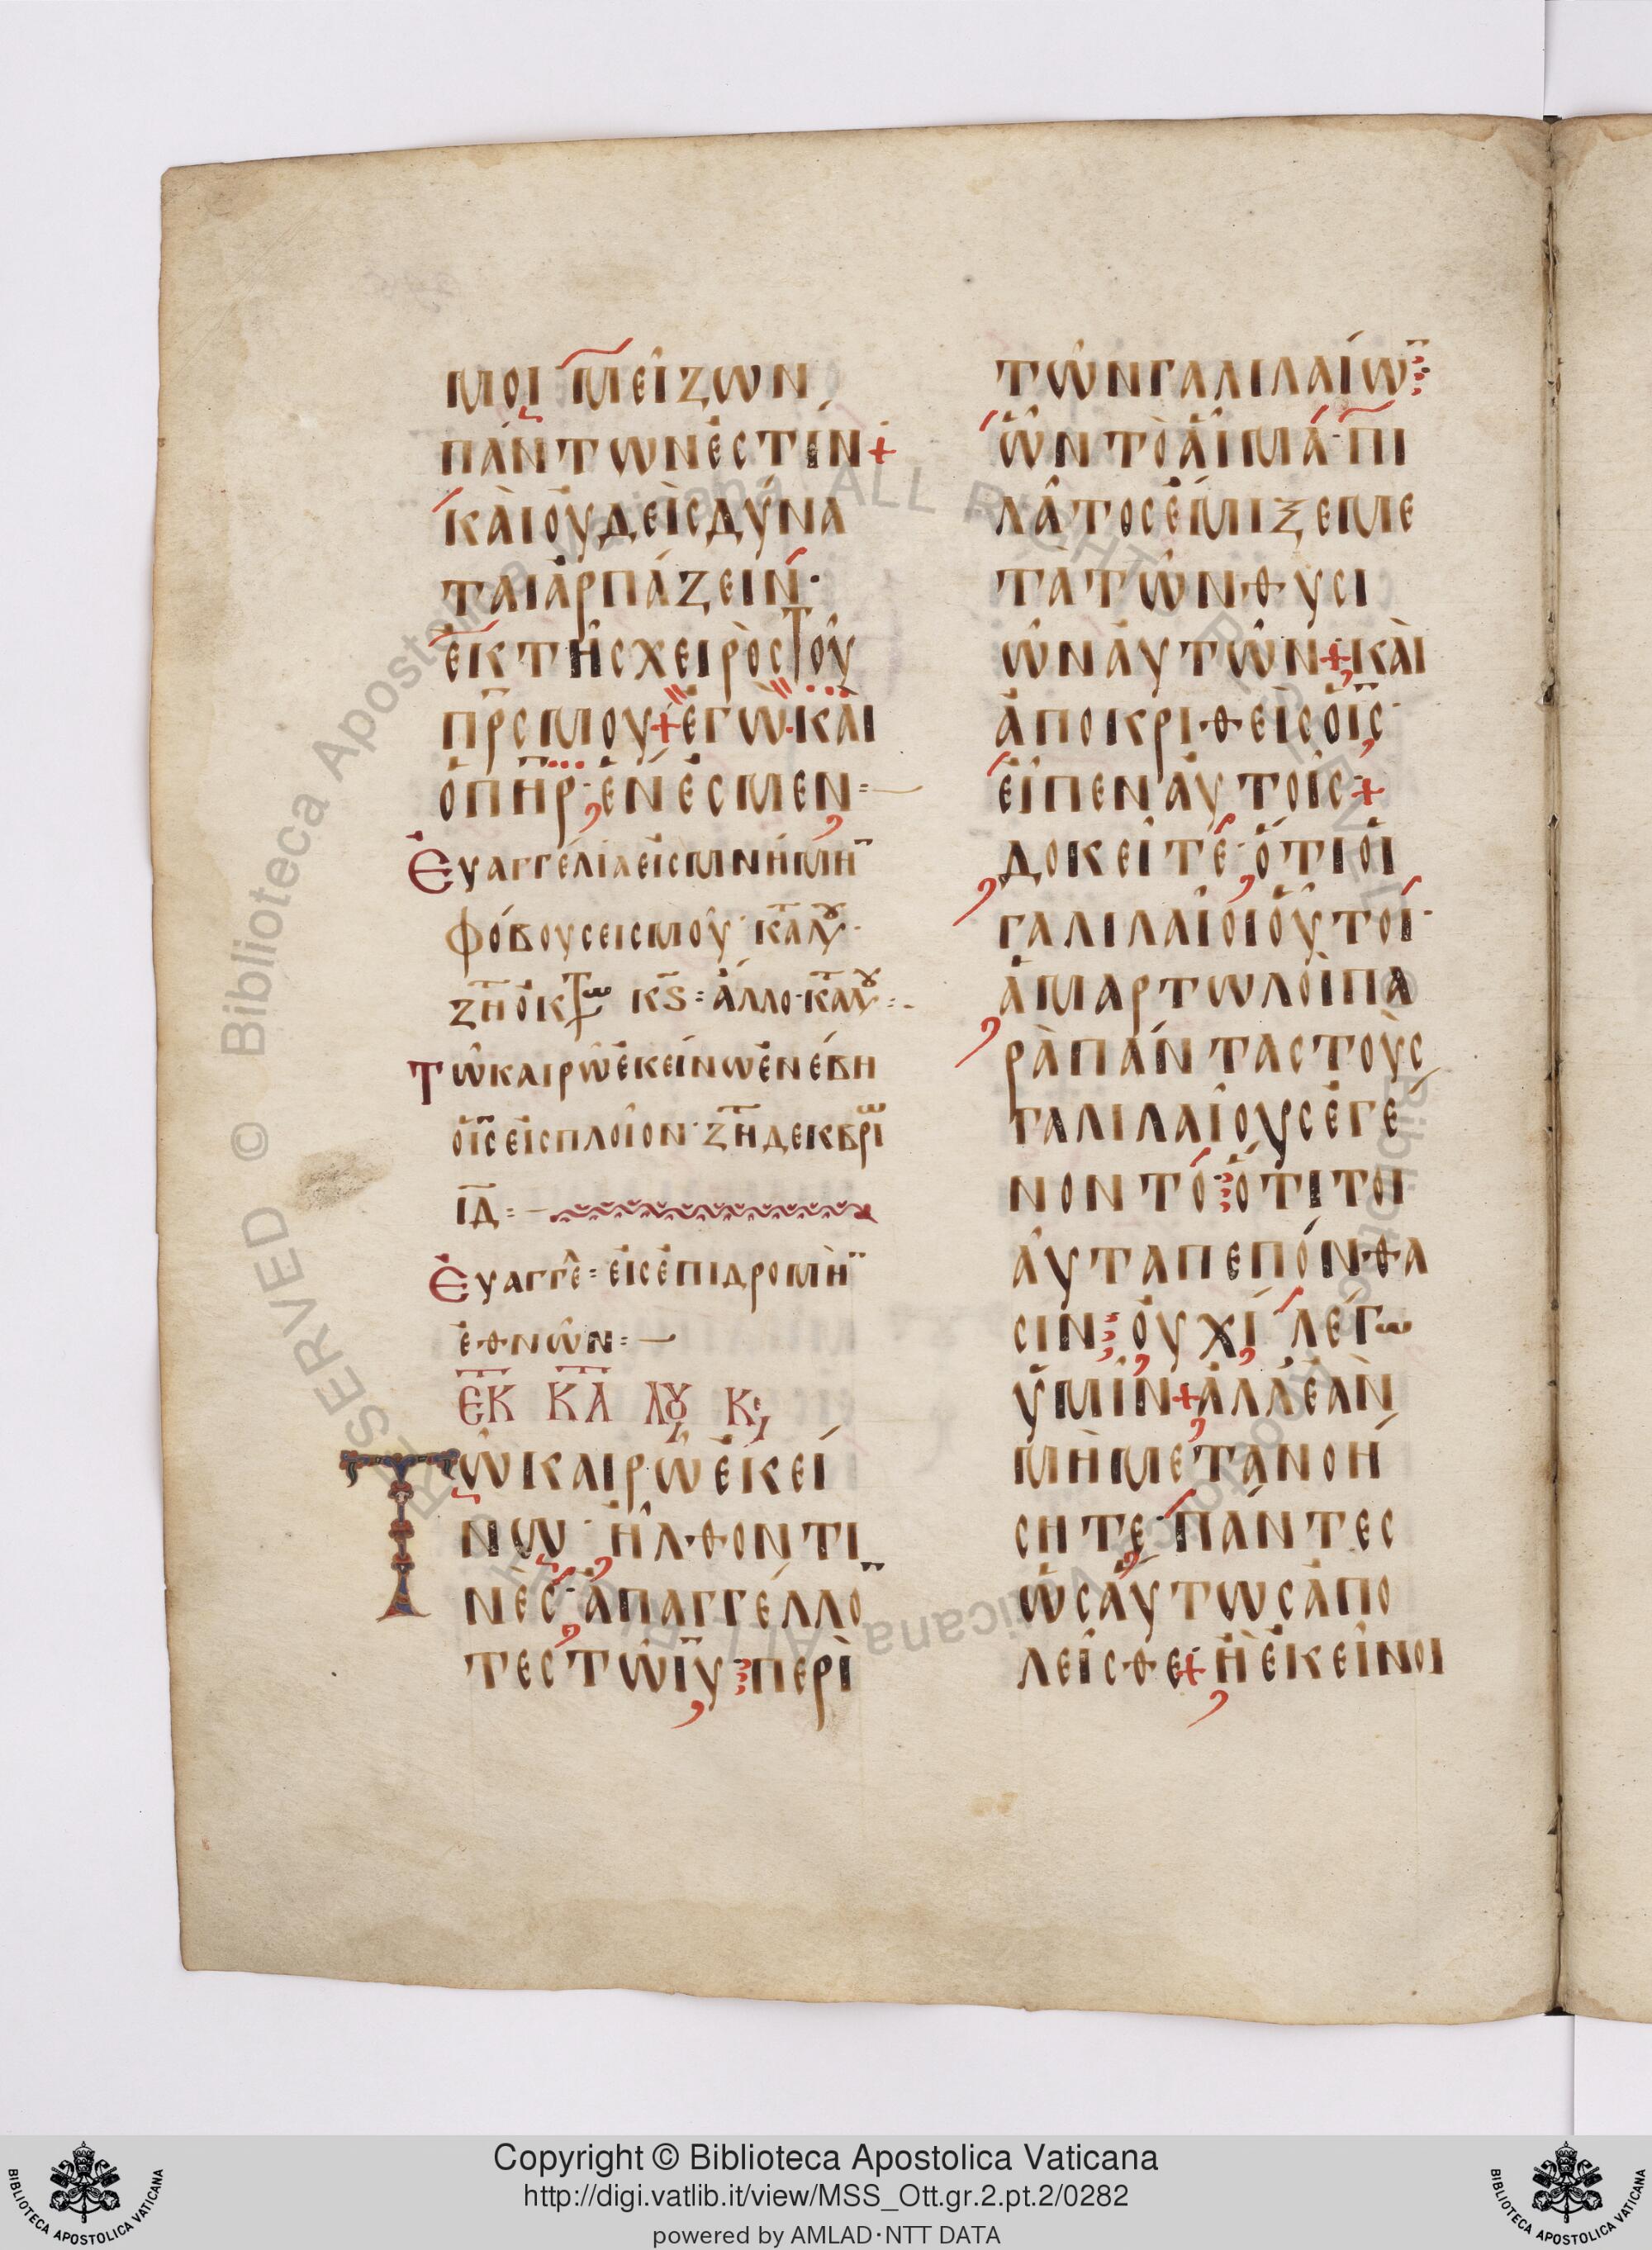 ΜΟΙ ΜΕΙΖΩΝ
ΠΑΝΤΩΝΕΣΤΙΝ+
ΚΑΙΟΥΔΕΙΣΔΥΝΑ
ΤΑΙΑΡΠΑΖΕΙΝ·
ΕΚΤΗΣΧΕΙΡΟΣΤΟΥ
ΠΡΣΜΟΥ+ΕΓΩ·ΚΑΙ
ΟΠΗΡ·ΕΝΕΣΜΕΝ=
ΕΥΑΓΓΕΛΙΑΕΙΣΜΝΗΜΗ
ΦΟΒΟΥΣΕΙΣΜΟΥ· ΚΑΛΥ·
ΖΗΟΚΤΩ ΚϚ=ΑΛΛΟ·ΚΑΛΥ=
ΤΩΚΑΙΡΩΕΚΕΙΝΩΕΝΕΒΗ
ΟΙΣΕΙΣΠΛΟΙΟΝ·ΖΗΔΕΚΒΡΙ
ΙΔ=
ΕΥΑΓΓΕ=ΕΙΣΕΠΙΔΡΟΜΗ
ΕΘΝΩΝ=
ΕΚ ΚΑ ΛΟΥ Κ
ΤΩΚΑΙΡΩΕΚΕΙ
ΝΩ· ΗΛΘΟΝΤΙ
ΝΕΣ·ΑΠΑΓΓΕΛΛΟ
ΤΕΣΤΩΙΥ ΠΕΡΙ
ΤΩΝΓΑΛΙΛΑΙΩ
ΩΝΤΟΑΙΜΑ·ΠΙ
ΛΑΤΟΣΕΜΙΞΕΜΕ
ΤΑΤΩΝΘΥΣΙ
ΩΝΑΥΤΩΝ+ΚΑΙ
ΑΠΟΚΡΙΘΕΙΣΟΙΣ·
ΕΙΠΕΝΑΥΤΟΙΣ·+
ΔΟΚΕΙΤΕ·ΟΤΙΟΙ
ΓΑΛΙΛΑΙΟΙΟΥΤΟΙ·
ΑΜΑΡΤΩΛΟΙΠΑ
ΡΑΠΑΝΤΑΣΤΟΥΣ
ΓΑΛΙΛΑΙΟΥΣΕΓΕ
ΝΟΝΤΟ ΟΤΙΤΟΙ
ΑΥΤΑΠΕΠΟΝΘΑ
ΣΙΝ ΟΥΧΙ ΛΕΓΩ
ΥΜΙΝ+ΑΛΛΕΑΝ
ΜΗΜΕΤΑΝΟΗ
ΣΗΤΕ·ΠΑΝΤΕΣ
ΩΣΑΥΤΩΣΑΠΟ
ΛΕΙΣΘΕ+ΗΕΚΕΙΝΟΙ
Copyright © Biblioteca Apostolica Vaticana
http://digi.vatlib.it/view/MSS_Ott.gr.2.pt.2/0282
powered by AMLAD·NTT DATA